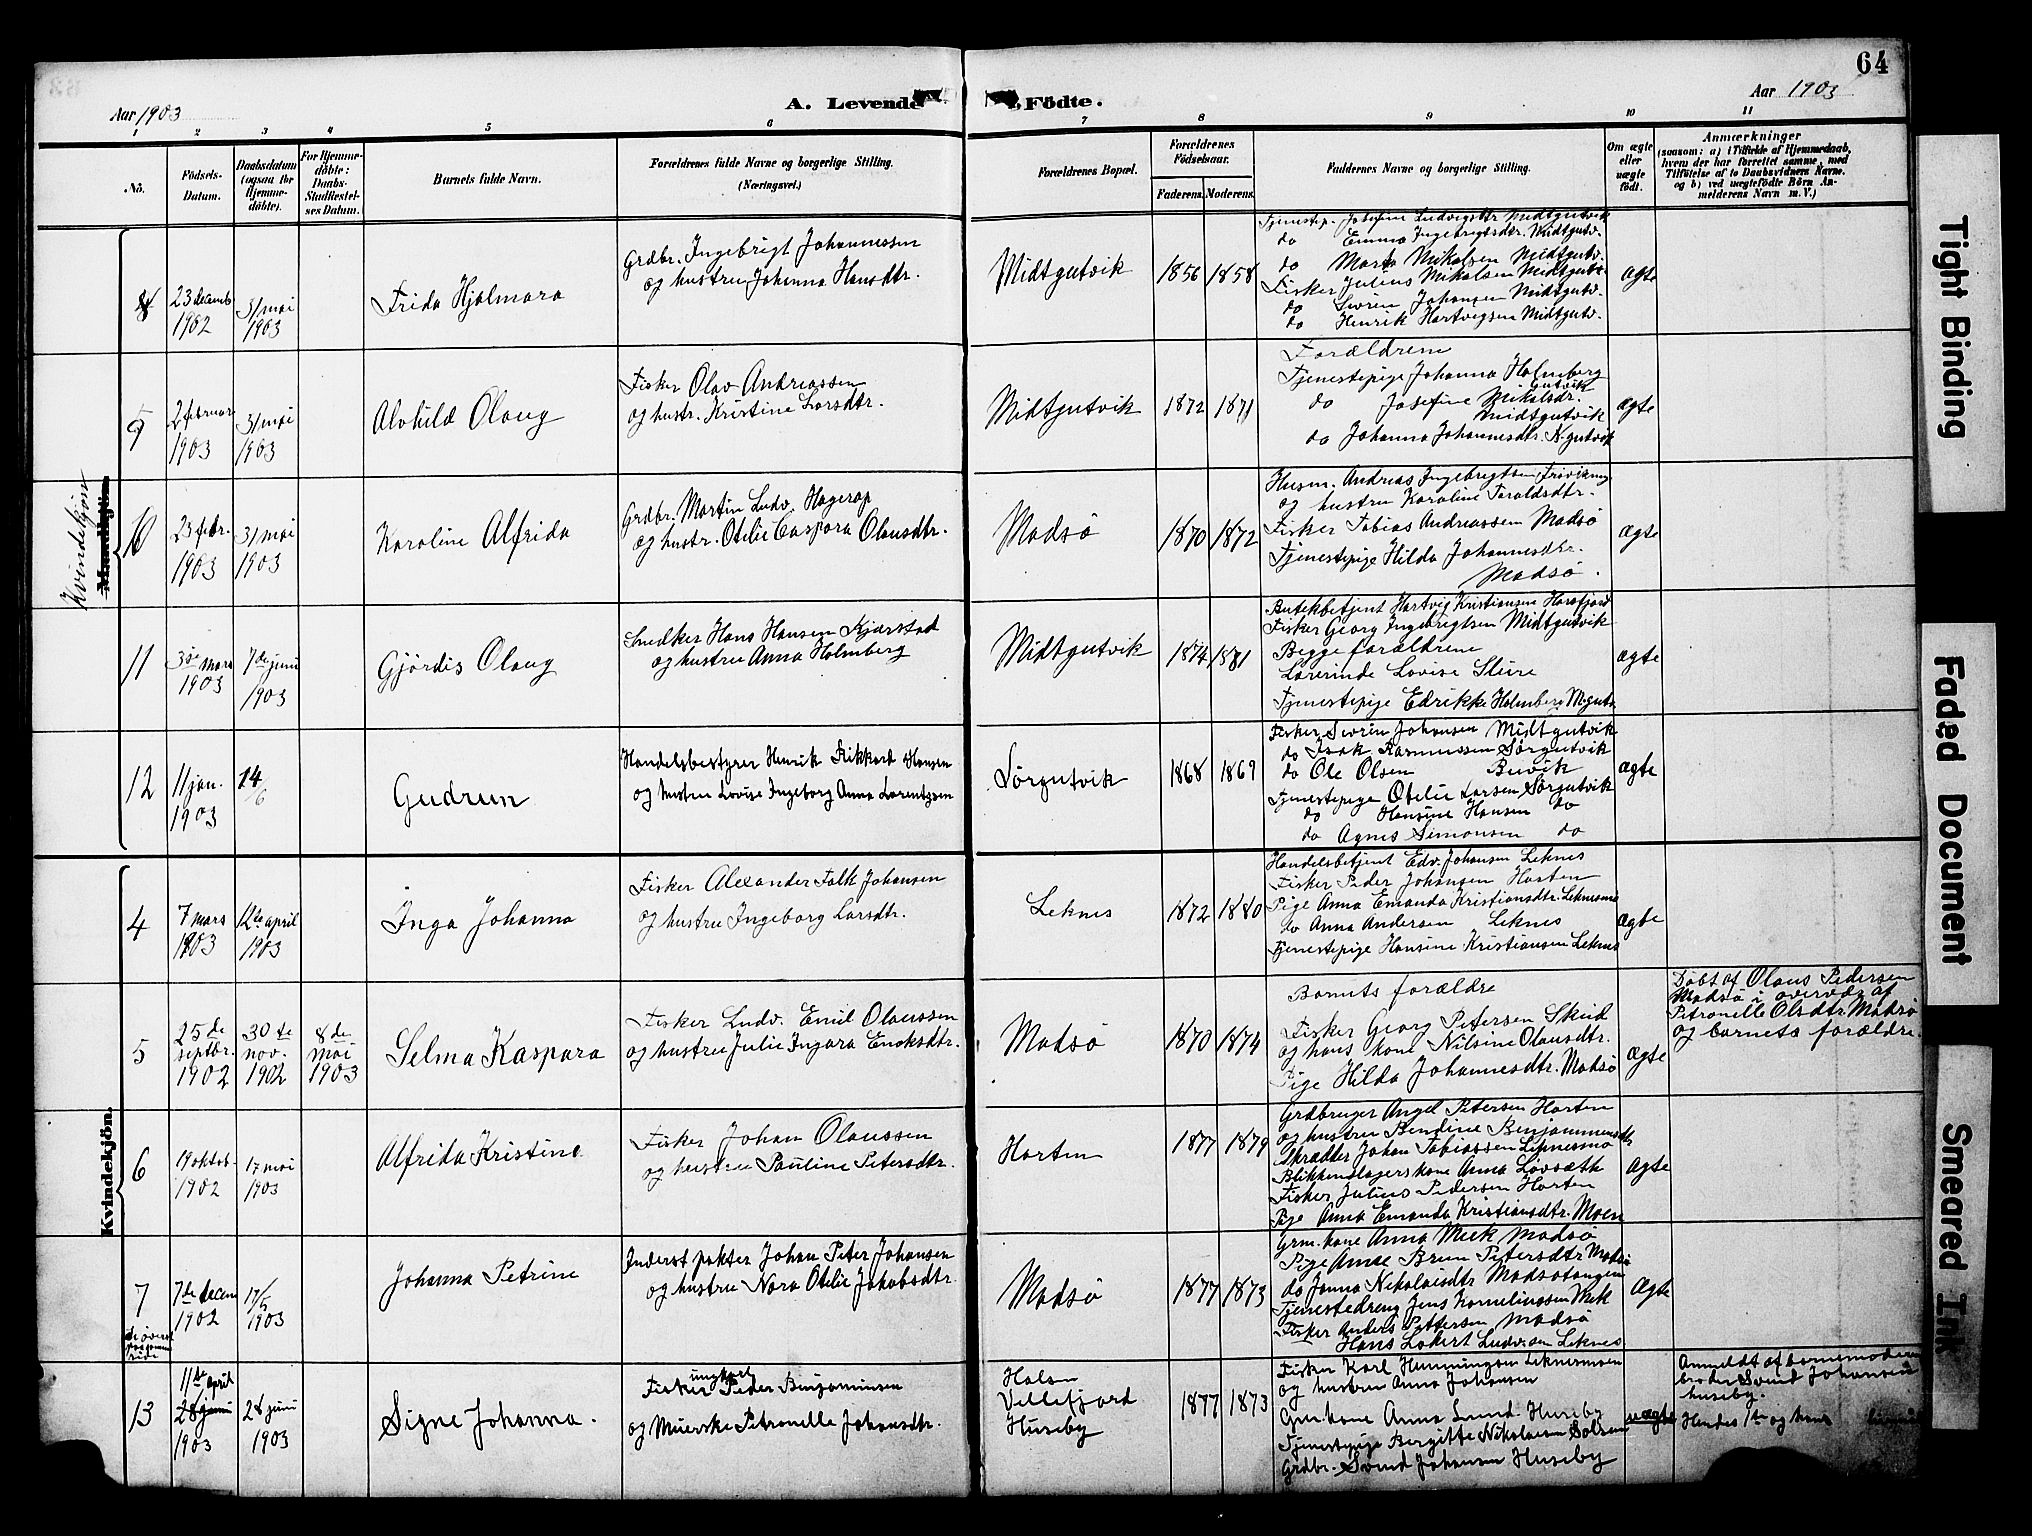 64
Aar 1903
A. Levende Födte.
Aar 1903
1 2 3 4 5 6 7 8 9 10 11
No.
Födsels-
Datum.
Daabsdatum
(ogsaa for
Hjemme-
döbte).
For Hjemme-
döbte:
Daabs-
Stadfæstel-
ses Datum.
Barnets fulde Navn.
Forældrenes fulde Navne og borgerlige Stilling.
(Næringsvei.)
Forældrenes Bopæl.
Forældrenes
Födselsaar.
Faderens. Moderens.
Faddernes Navne og borgerlige Stilling.
Om ægte
eller
uægte
födt.
Anmærkninger
(saasom: a) i Tilfælde af Hjemmedaab,
hvem der har forrettet samme, med
Tilföielse af to Daabsvidners Navne.
og b) ved uægtefödte Börn An-
melderens Navn m. V.)
Kvindekjön
Mandkjön
23 decemb.
1902
31/mai
1903
Frida Hjalmara
Grdbr. Ingebrigt Johannessen
og hustru Johanna Hansdtr.
Midtgutvik
1856 1858
Tjenestep. Josefine Ludvigsdtr Midtgutvik
do Emma Ingebrigtsdtr. Midtgutv.
do Marta Mikalsen Midtgutv.
Fisker Julius Mikalsen Midtgutv.
do Søren Johansen Midtgutv.
do Henrik Hartvigsen Midtgutv.
ægte
2 februar
1903
31/mai
1903
Alvhild Olaug
Fisker Olav Andreassen
og hustr. Kristine Larsdtr.
Midtgutvik
1872 1871
Forældrene
Tjenestepige Johanna Holmberg
gutvik
do Josefine Mikalsdtr.
Midtgutvik
do Johanna Johannesdtr. N.gutvik
ægte
23 febr.
1903
31/mai
1903
Karoline Alfrida
Grdbr. Martin Ludv. Hagerup
og hustr. Otelie Caspara Olausdtr.
Madsö
1870 1872
Husm. Andreas Ingebrigtsen
og hustru Karoline Taraldsdtr.
Fisker Tobias Andreassen Madsö
Tjenestepige Hilda Johannesdtr.
Madsö.
ægte
11
3de mars
1903
7de juni
1903
Gjördis Olaug
Snedker Hans Hansen Kjærstad
og hustru Anna Holmberg
Midtgutvik
1874 1881
Butekbetjent Hartvig Kristiansen
Fisker Georg Ingebrigtsen Midtgutvik
Begge forældrene
Lærerinde Lovise Sture
Tjenestepige Edrikke Holmberg M.gutv.
ægte
12
11 jan.
1903
14/6
Gudrun
Handelsbestyrer Henrik Rikkard Hansen
og hustru Lovise Ingeborg Anna Lorentzsen
Sörgutvik
1868 1869
Fisker Sören Johansen Midtgutvik
do Isak Rasmussen Sörgutvik
do Ole Olsen Buvik
Tjenestepige Otelie Larsen, Sörgutvik
do Hansine Hansen do
do Agnes Simonsen do
ægte
Kvindekjön.
4
7 mars
1903
12te april
1903
Inga Johanna
Fisker Alexander Falk Johansen
og hustru Ingeborg Larsdtr.
Leknes
1872 1880
Handelsbetjent Edv. Johansen Leknes
Fisker Peder Johansen Horten
Pige Anna Emanda Kristiansdtr. Leknesmo
do Anna Andersen Leknes
Tjenestepige Hansine Kristiansen Leknes
ægte
5
25de
septbr.
1902
30te
nov.
1902
8de
mai
1903
Selma Kaspara
Fisker Ludv. Emil Olaussen
og hustru Julie Ingara Enoksdtr.
Madsö
1870 1874
Barnets forældre
Fisker Georg Petersen Skeid
og hans kone Nilsine Olausdtr.
Pige Hilda Johannesdtr. Madsö
ægte
Döbt af Olaus Pedersen
Madsö i overvær af
Petronelle Olsdtr Madsö
og barnets forældre.
6
19 oktob.
1902
17 mai
1903
Alfrida Kristine
Fisker Johan Olaussen
og hustru Pauline Petersdtr.
Horten
1877 1879
Grdbruger Angel Petersen Horten
og hustru Bendine Benjaminsdtr
Skrædder Johan Tobiassen Leknesmo
Blikkenslagerskone Anna Lövsæth
Fisker Julius Pedersen Horten
Pige Anna Emanda Kristiansdtr. Moen
ægte
7
7de decem
1902
17/5
1903
Johanna Petrine
Inderst pakter Johan Peter Johansen
og hustru Nora Otelie Jakobsdtr.
Madsö
1877 1873
Grm. kone Anna Meek Madsö
Pige Anne Brun Petersdtr Madsö
do Janna Nikolaisdtr Madsötangen
Tjenestedreng Jens Korneliussen Meek
Fisker Anders Pettersen Madsö
Hans Lokert Ludv.sen Leknes
ægte
13
11te april
28 juni
1903
28 juni
1903
Signe Johanna.
ungkarl
Fisker Peder Benjaminsen
og Meierske Petronelle Johansdtr.
Halsen
Vellefjord
Huseby
1877 1873
Fisker Karl Henningsen Leknesmoen
og hustru Anna Johansen
Grm. kone Anna Lund Huseby
Tjenestepige Bergitte Nikolaisen Solsem
Grdbr. Svend Johansen Huseby
uægte
Anmeldt af barnemoderens
broder Svend Johansen
huseby.
Hendes 1te og hans
Tight Binding
Faded Document
Smeared Ink